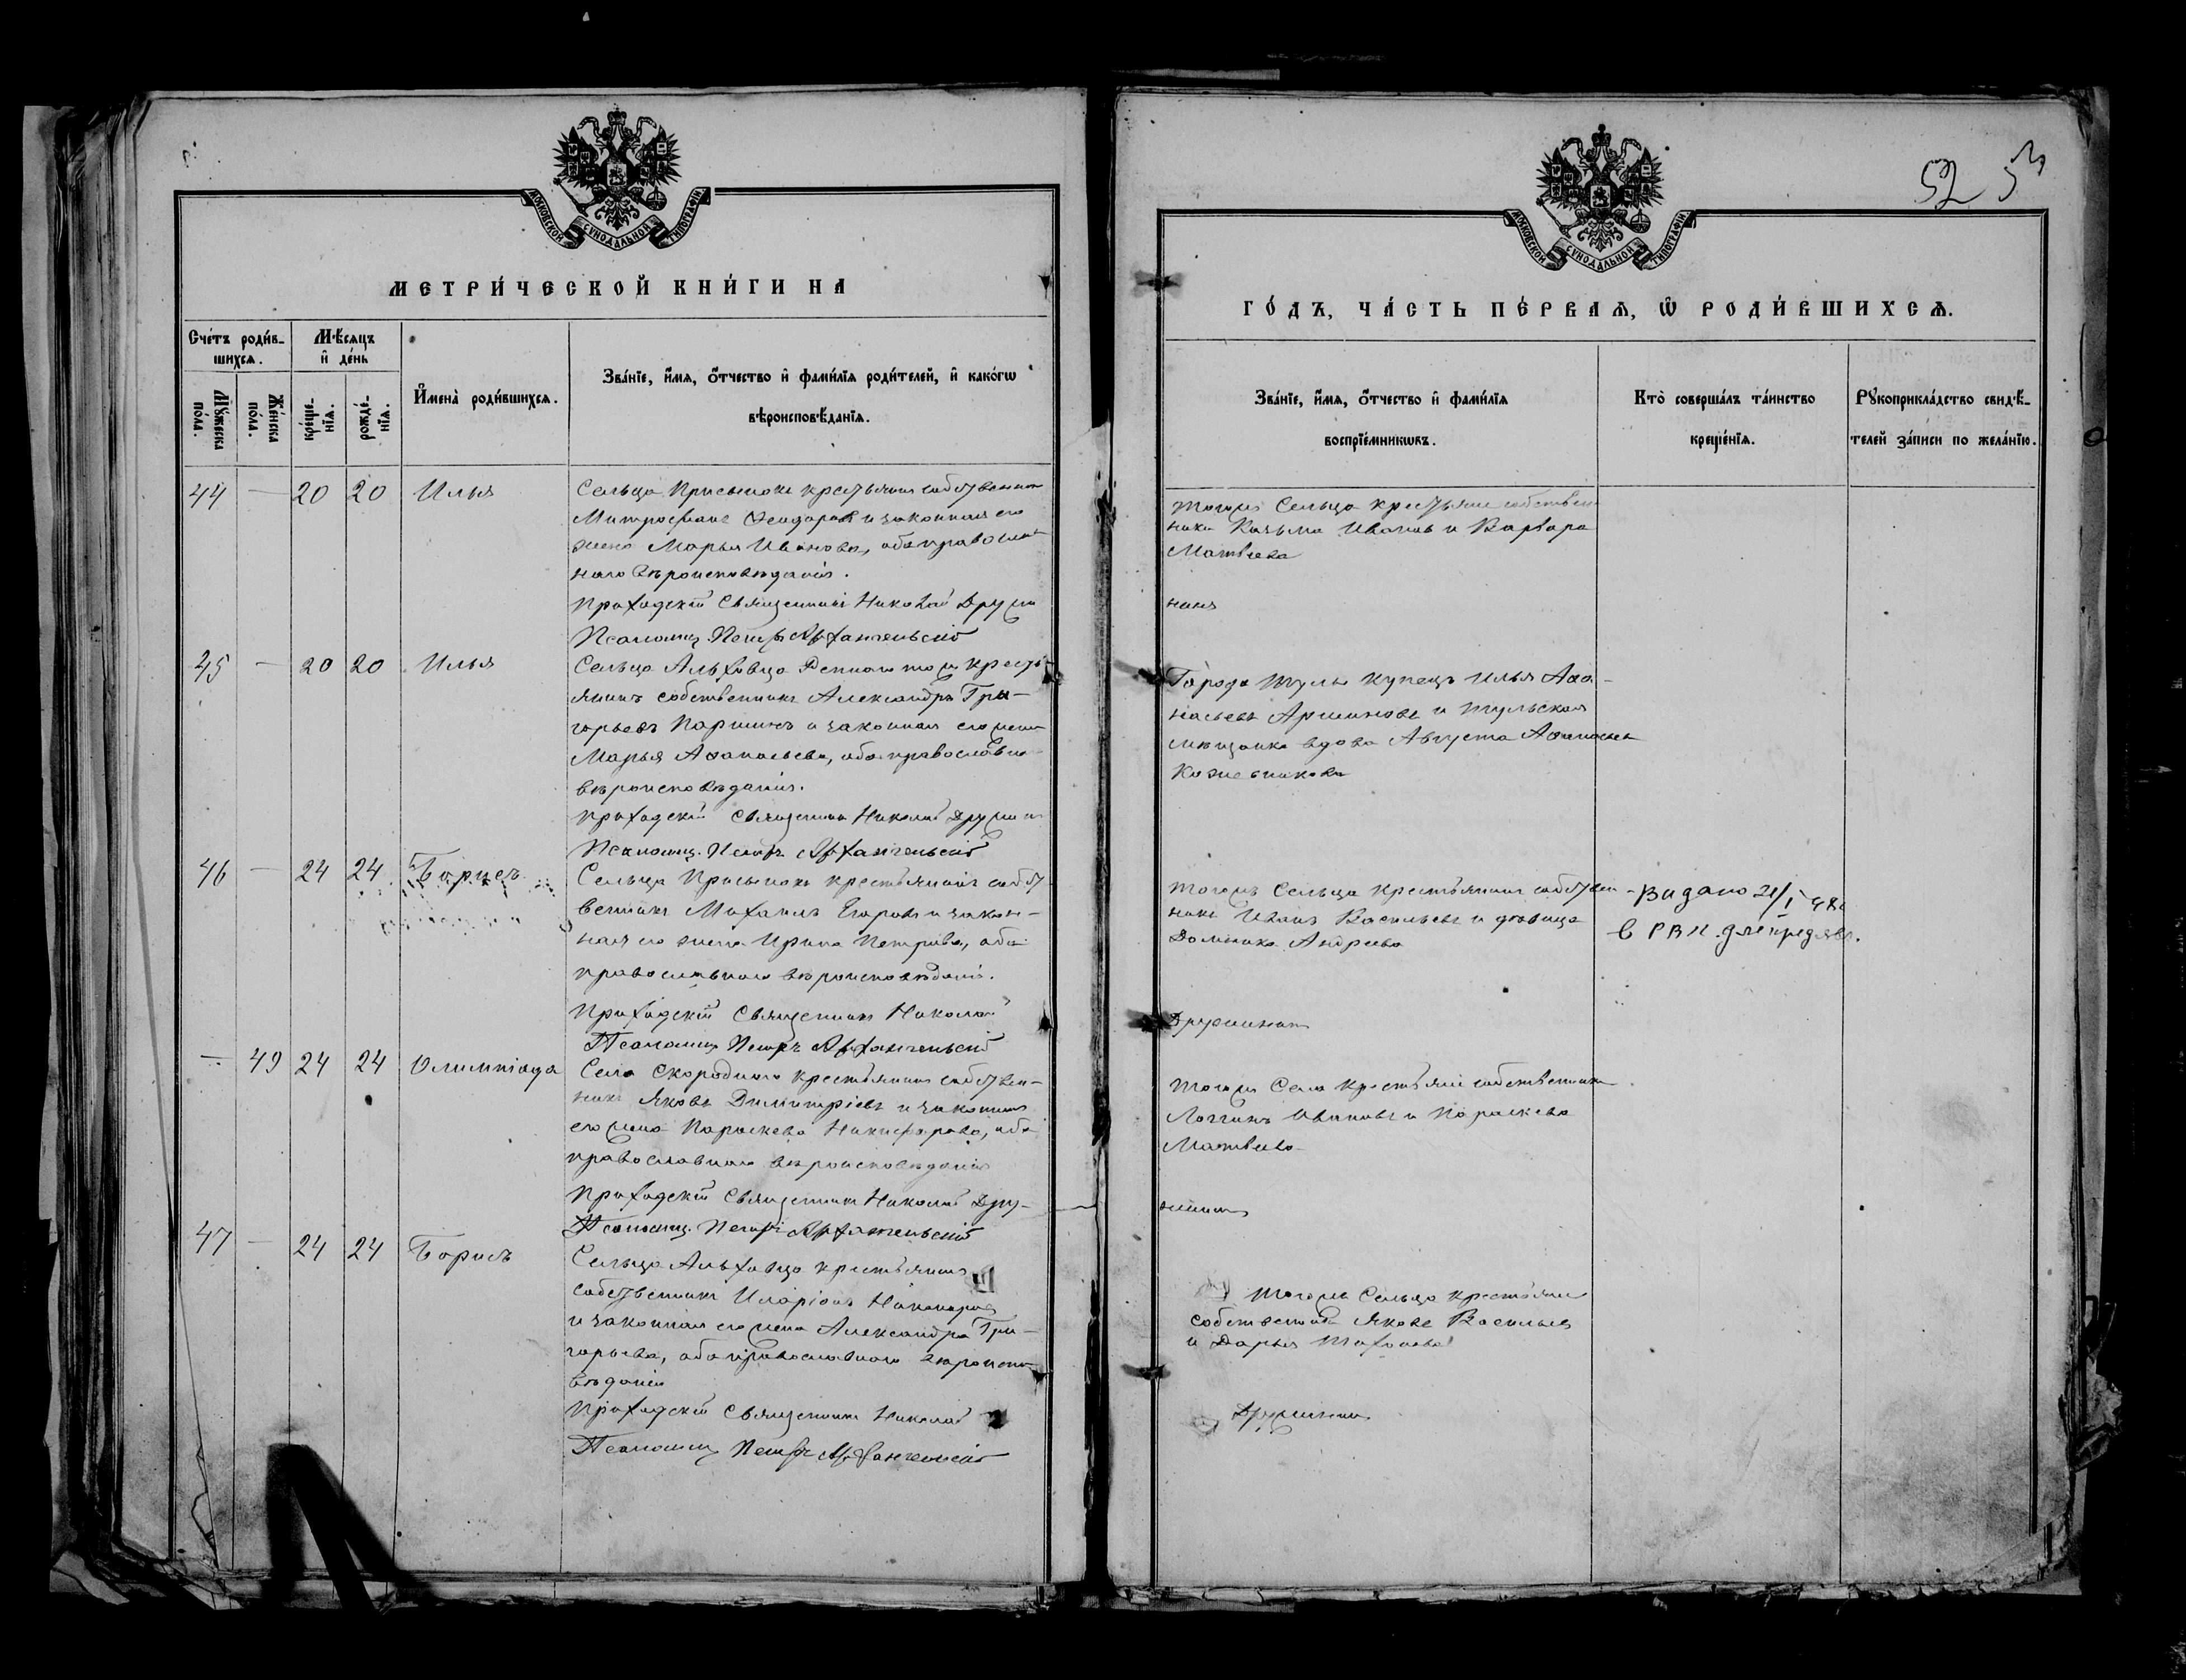 52 53
МОСКОВСКОЙ СѴНОДАЛЬНОЙ ТИПОГРАФІИ
МЕТРИ́ЧЕСКОЙ КНИ́ГИ НА
Сче́тъ роди́в-
шихсѧ.
Мѣ́сѧцъ
и҆ де́нь
Мꙋ́жеска по́ла.
Же́нска по́ла.
креще́-
нїѧ.
рожде́-
нїѧ.
И҆мена̀ роди́вшихсѧ.
Зва́нїе, и҆́мѧ, ѻ҆́тчество и҆ фами́лїѧ роди́телей, и҆ како́гѡ
вѣроисповѣ́данїѧ.
44 — 20 20 Илья
Сельца Присынокъ крестьянинъ собственникъ
Митрофанъ Ѳеодоровъ и законная его
жена Марья Иванова, оба православ-
наго вѣроисповѣданія.
Приходскій Священникъ Николай Друж
Псаломщ. Петръ Архангельскій
45 — 20 20 Илья
Сельца Альховца тожъ кресть-
янинъ собственникъ Александръ Гри-
горьевъ Паршинъ и законная его жена
Марья Аѳанасьева, оба православна
вѣроисповѣданія.
Приходскій Священникъ Николай Дружин
Псаломщ. Петръ Архангельскій
46 — 24 24 Борисъ
Сельца Присынокъ крестьянинъ собст
венникъ Михаилъ Егоровъ и закон-
ная его жена Ирина Петрова, оба
православнаго вѣроисповѣданія.
Приходскій Священникъ Николай
Псаломщ Петръ Архангельскій
— 49 24 24 Олимпіада
Села Скороднаго крестьянинъ собствен-
никъ Яковъ Димитріевъ и законная
его жена Параскева Никифорова, оба
православнаго вѣроисповѣданія
Приходскій Священникъ Николай Дру-
Псаломщ. Петръ Архангельскій
47 — 24 24 Борисъ
Сельца Альховца крестьянинъ
собственникъ Иларіонъ Никаноровъ
и законная его жена Александра Гри-
горьева, оба православнаго вѣроиспо-
вѣданія
Приходскій Священникъ Николай
Псаломщ Петръ Архангельскій
МОСКОВСКОЙ СѴНОДАЛЬНОЙ ТИПОГРАФІИ
ГО́ДЪ, ЧА́СТЬ ПЕ́РВАѦ, Ѡ҆ РОДИ́ВШИХСѦ.
Зва́нїе, и҆́мѧ, ѻ҆́тчество и҆ фами́лїѧ
воспрїе́мникѡвъ.
Кто̀ соверша́лъ та́инство
креще́нїѧ.
Рꙋкоприкла́дство свидѣ́-
телей за́писи по жела́нїю.
тогожъ Сельца крестьяне собствен
ники Козьма Ивановъ и Варвара
Матвѣева
нинъ
Города Тулы купецъ Илья Аѳа-
насьевъ Аршиновъ и тульская
мѣщанка вдова Августа Аѳанасьева
Кожевникова
тогожъ Сельца крестьянинъ собствен
никъ Иванъ Васильевъ и дѣвица
Домника Андреева
Видано 21/I
в РВК для предявл.
Дружининъ
тогожъ Села крестьяне собственники
Логгинъ Ивановъ и Параскева
Матвѣева
жининъ
тогожъ Сельца крестьяне
собственники Яковъ Васильевъ
и Дарья
Дружининъ